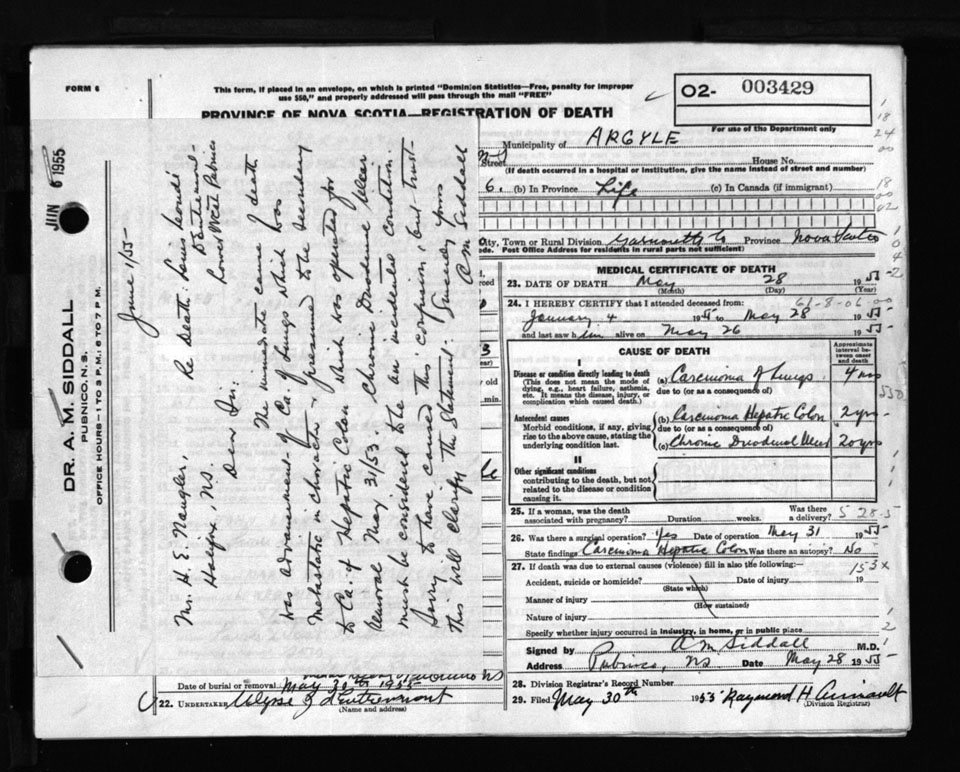 FORM 6
This form, if placed in an envelope, on which is printed "Dominion Statistics—Free, penalty for improper
use $50," and properly addressed will pass through the mail "FREE"
PROVINCE OF NOVA SCOTIA—REGISTRATION OF DEATH
O2- 003429
For use of the Department only
Municipality of ARGYLE
Street House No.
(If death occurred in a hospital or institution, give the name instead of street and number)
6. (b) In Province Life (c) In Canada (if immigrant)
City, Town or Rural Division Yarmouth Co Province Nova Scotia
Post Office Address for residents in rural parts not sufficient)
MEDICAL CERTIFICATE OF DEATH
23. DATE OF DEATH May 28 1955
(Month) (Day)
24. I HEREBY CERTIFY that I attended deceased from: 61-8-06-00
January 4 1955 to May 28 1955
and last saw him alive on May 26 1955
CAUSE OF DEATH
Approximate interval between onset and death
I
Disease or condition directly leading to death
(This does not mean the mode of dying, e.g., heart failure, asthenia, etc. It means the disease, injury, or complication which caused death.)
(a) Carcinoma of Lungs 4 mos
due to (or as a consequence of)
Antecedent causes
Morbid conditions, if any, giving rise to the above cause, stating the underlying condition last.
(b) Carcinoma Hepatic Colon 2 yrs
due to (or as a consequence of)
(c) Chronic Duodenal Ulcer 20 yrs
II
Other significant conditions
contributing to the death, but not related to the disease or condition causing it.
25. If a woman, was the death associated with pregnancy? Duration weeks. Was there a delivery?
26. Was there a surgical operation? Yes Date of operation May 31 1953
State findings Carcinoma Hepatic Colon Was there an autopsy? No
27. If death was due to external causes (violence) fill in also the following:— 153x
Accident, suicide or homicide? Date of injury 19
(State which)
Manner of injury
(How sustained)
Nature of injury
Specify whether injury occurred in industry, in home, or in public place
Signed by A M Siddall M.D.
Address Pubnico, NS Date May 28 1955
28. Division Registrar's Record Number
29. Filed May 30th 1953 Raymond H
(Division Registrar)
Date of burial or removal May 30th 1955
22. UNDERTAKER Ulysse J d'Entremont
(Name and address)
JUN 6 1955
DR. A. M. SIDDALL
PUBNICO, N.S.
OFFICE HOURS—1 TO 3 P.M.; 6 TO 7 P.M.
June 1/55
Mr. H. E. Naugler, Re Death: Louis
Halifax, NS. D'Entremont
Lower West Pubnico
Dear Sir:
The immediate cause of death
was advancement of Ca. of Lungs which was
metastatic in character & presumed to be secondary
to Ca of Hepatic Colon which was operated for
removal May 31/53. Chronic Duodenal Ulcer
must be considered to be an incidental condition.
Sorry to have caused this confusion, but trust
this will clarify the Statement.
Sincerely yours
A M Siddall